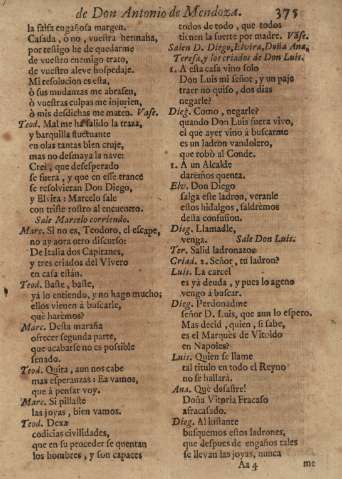 de Don Antonio de Mendoza. 375
la falsa engañosa margen.
Casada, ò no, vuestra hermana,
por testigo he de quedarme
de vuestro enemigo trato,
de vuestro aleve hospedaje.
Mi resolucion es esta,
ò sus mudanzas me abrasen,
ò vuestras culpas me injurien,
ò mis desdichas me maten. Vase.
Teod. Mal me ha salido la traza,
y barquilla fluctuante
en olas tantas bien cruje,
mas no desmaya la nave:
Creì, que desesperado
se fuera, y que en este trance
se resolvieran Don Diego,
y Elvira: Marcelo sale
con triste rostro al encuentro.
Sale Marcelo corriendo.
Marc. Si no es, Teodoro, el escape,
no ay aora otro discurso:
De Italia dos Capitanes,
y tres criados del Vivero
en casa estàn.
Teod. Baste, baste,
yà lo entiendo, y no hago mucho;
ellos vienen à buscarle,
què harèmos?
Marc. Desta maraña
ofrecer segunda parte,
que acabarse no es possible
senado.
Teod. Quita, aun nos cabe
mas esperanzas: Ea vamos,
que à pensar voy.
Marc. Si pillaste
las joyas, bien vamos.
Teod. Dexa
codicias civilidades,
que en su proceder se quentan
los hombres, y son capaces
todos de todo, que todos
tienen la suerte por madre. Vase.
Salen D. Diego, Elvira, Doña Ana,
Teresa, y los criados de Don Luis.
1. A esta casa vino solo
Don Luis mi señor, y un paje
traer no quiso, dos dias
negarle?
Dieg. Como, negarle?
quando Don Luis fuera vivo,
el que ayer vino à buscarme
es un ladron vandolero,
que robò al Conde.
1. A un Alcalde
darèmos quenta.
Elv. Don Diego
salga este ladron, veranle
estos hidalgos, saldrèmos
desta confusion.
Dieg. Llamadle,
venga. Sale Don Luis.
Ter. Salid ladronazo.
Criad. 2. Señor, tu ladron?
Luis. La carcel
es yà deuda, y pues lo ageno
vengo à buscar.
Dieg. Perdonadme
señor D. Luis, que aun lo espero.
Mas decid, quien, si sabe,
es el Marquès de Vitoldo
en Napoles?
Luis. Quien se llame
tal titulo en todo el Reyno
no se hallarà.
Ana. Què desastre!
Doña Vitoria Fracaso
afracasado.
Dieg. Al instante
busquemos estos ladrones,
que despues de engaños tales
se llevan las joyas, nunca
Aa 4 me